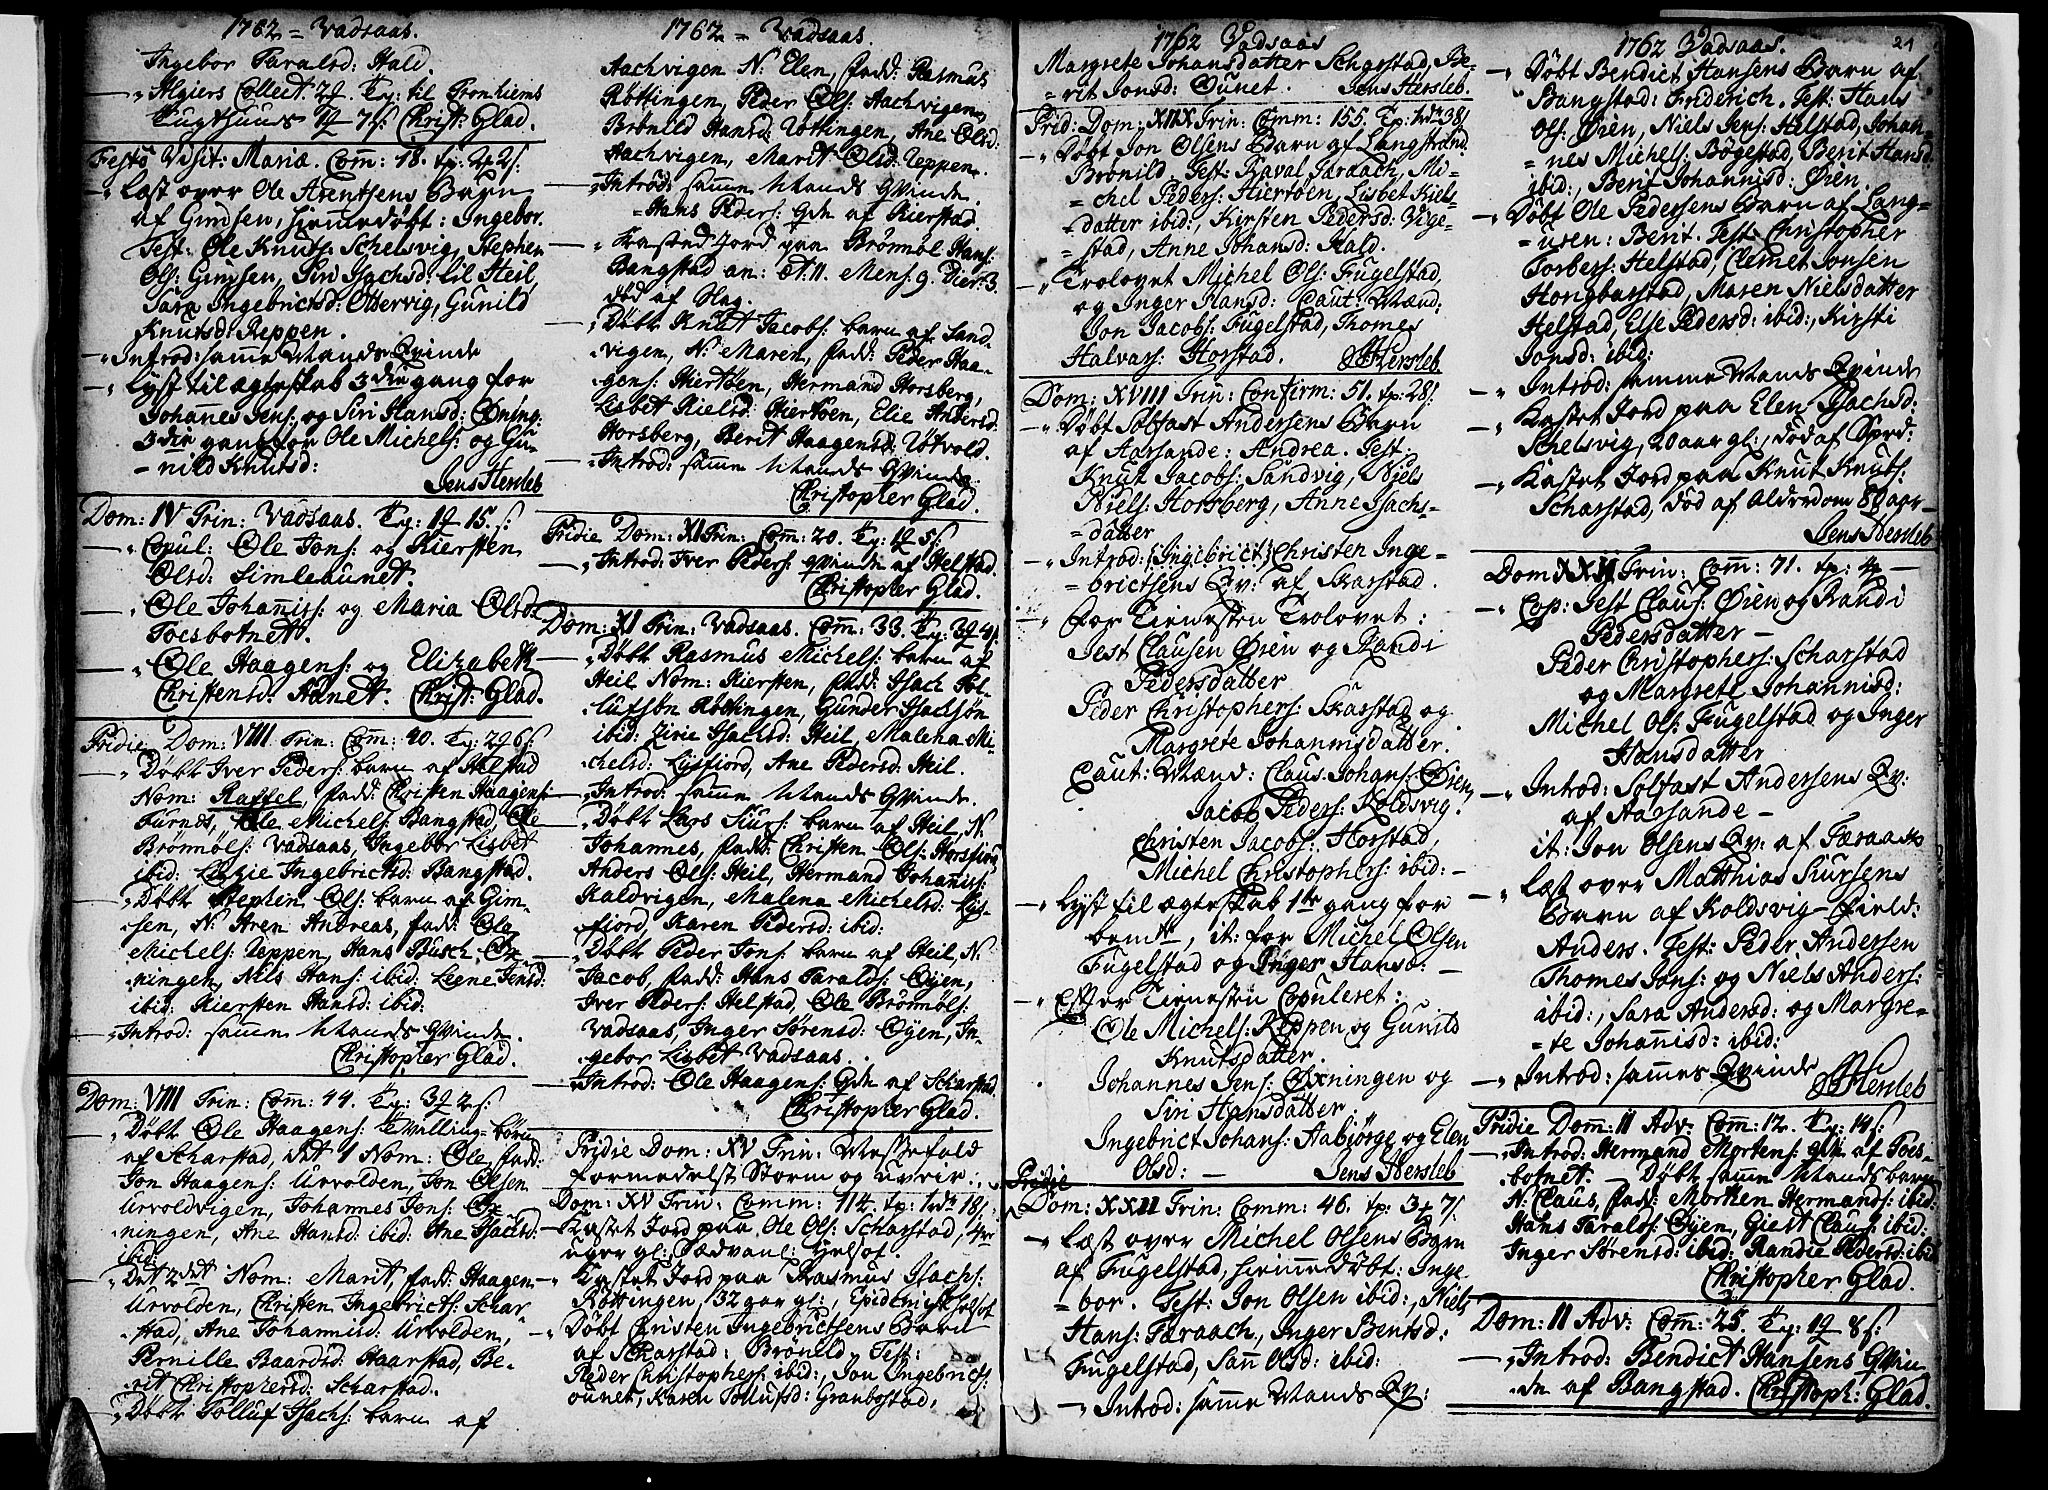 1762 = Vadsaas.
Ingebor Taralsd: Hald
Algiers Collect
Christ: Glad.
Festo Visit: Mariæ. Com: 18.
Læst over Ole Arentsens Barn
af Gimsen, hiemmedøbt: Ingebor.
Test: Ole Knuts: Schelsvig, Stephen
Ols: Gimsen, Siri Isachsd: lil Heil,
Sara Ingebrictsd: Ottervig, Gunild
Knutsd: Reppen.
Introd: samme Mands Qvinde
Lyst til ægteskab 3die gang for
Johannes Jens: og Siri Hansd: Øning:
3die gang for Ole Michels: og Gu-
-nild Knutsd:
Jens Hersleb
Dom: IV Trin: Vadsaas.
Copul: Ole Jons: og Kiersten
Olsd: Simleaunet.
Ole Johannis: og Maria Olsd:
Foesbotnet.
Ole Haagens: og Elizabeth
Christensd: Aunet. Christ: Glad.
Pridie Dom: VIII Trin: Com: 40.
Døbt Iver Peders: barn af Helstad
Nom: Raffel, fadd: Christen Haagens:
Furnes, Ole Michels: Bangstad, Ole
Brønnøls: Vadsaas, Ingebor Lisbet
ibid: Ingebrictsd: Bangstad.
Døbt Stephen Ols: barn af Gim-
sen, N: Aren Andreas, fadd: Ole
Michels: Reppen, Hans Busch, Øx-
ningen, Nils Hans: ibid: Leene Jensd:
ibid: Kiersten Hansd: ibid:
Introd: samme Mands Qvinde.
Christopher Glad.
Dom: VIII Trin: Com: 44.
Døbt Ole Haagens: Tvilling-børn
af Scharstad, det 1 Nom: Ole, fadd:
Jon Haagens: Urvolden, Jon Olsen
Urvoldvigen, Johannes Jons: Øx-
ningen, Ane Hansd: ibid: Ane Isachsd:
ibid:
Det 2det Nom: Marit, fadd: Haagen
Urvolden, Christen Ingebricts: Schar-
stad, Ane Johannisd: Urvolden,
Pernille Baardsd: Haarstad, Be-
rit Christophersd: Scharstad.
Døbt Tolluf Isachs: barn af
1762 = Vadsaas.
Aachvigen N: Elen, fadd: Rasmus
Røttingen, Peder Ols: Aachvigen
Brønild Hansd: Røttingen, Ane Olsd:
Aachvigen, Marit Olsd: Reppen.
Introd: samme Mands Qvinde.
Hans Peders: Qde af Kierstad.
Kasted Jord paa Brønnøl Hans:
Bangstad an: æt. 11. Mens: 9. Dier: 3
død af
Døbt Knut Jacobs: barn af Sand-
vigen, N: Maren, fadd: Peder Haa-
gens: Hiertøen, Hermand Horsberg,
Lisbet Kielsd: Hiertøen, Elie Andersd:
Horsberg, Berit Haagensd: Utvold.
Introd: samme Mands Qvinde.
Christopher Glad.
Pridie Dom: XI Trin: Com: 20.
Introd: Iver Peders: Qvinde af Helstad.
Christopher Glad.
Dom: XI Trin: Vadsaas. Com: 33.
Døbt Rasmus Michels: barn af
Heil Nom: Kiersten, fadd: Isach Tol-
lufsøn Røttingen, Gunder Isachsøn
ibid: Zirie Isachsd: Heil, Malena Mi-
chelsd: Liisfiord, Ane Pedersd: Heil.
Introd: samme Mands Qvinde.
Døbt Lars Siurs: barn af Heil, N:
Johannes, fadd: Christen Ols: Horsfiord
Anders Ols: Heil, Hermand Johannis:
Kaldvigen, Malena Michelsd: Liis-
fiord, Karen Pedersd: ibid:
Døbt Peder Jons: barn af Heil, N:
Jacob, fadd: Hans Taralds: Øyen,
Iver Peders: Helstad, Ole Brønnøls:
Vadsaas Inger Sørensd: Øyen, In-
gebor Lisbet Vadsaas.
Introd: Ole Haagens: Qde af Scharstad.
Christopher Glad.
Pridie Dom: XV Trin: Messefald
formedelst Storm og uveir.
Dom: XV Trin: Comm: 114.
Kastet Jord paa Ole Ols: Scharstad, 4re
uger gl: Sædvanl:
Kastet Jord paa Rasmus Isachs:
Røttingen, 32 aar gl:,
Døbt Christen Ingebrictsens Barn
af Scharstad: Brønild. Test:
Peder Christophers: ibid:, Jon Ingebricts:
ounet, Karen Tollufsd: Granbostad,
1762 Vadsaas
Margrete Johansdatter Scharstad, Be-
=rit Jonsd: Ounet. Jens Hersleb.
Prid: Dom: XIIX Trin: Comm: 155.
Døbt Jon Olsens Barn af Langstrand.
Brønild. Test: Kaval Faraach, Mi-
=chel Peders: Hiertøen, Lisbet Kiels-
=datter ibid:, Kirsten Pedersd: Vige-
=stad, Anne Johansd: Hald.
Trolovet Michel Ols: Fugelstad
og Inger Hansd: Caut: Mænd:
Jon Jacobs: Fugelstad, Thomes
Halvars: Horstad. JHersleb
Dom: XVIII Trin: Confirm: 51. tp: 28 s.
Døbt Solfast Andersens Barn
af Aarsande: Andrea. Test:
Knut Jacobs: Sandvig, Niels
Niels: Horsberg, Anne Isachs-
=datter
Introd: [Ingebrict] Christen Inge-
=brictsens Qv: af Skarstad.
for Tienesten Trolovet:
Jest Clausen Øien og Randi
Pedersdatter
Peder Christophers: Skarstad og
Margrete Johannisdatter.
Caut: Mænd: Claus Johans: Øien,
Jacob Peders: Koldsvig.
Christen Jacobs: Horstad,
Michel Christophers: ibid: -
Lyst til ægteskab 1te gang for
bemte, it: for Michel Olsen
Fugelstad og Inger Hansd: -
Efter Tienesten Copuleret:
Ole Michels: Reppen og Gunild
Knutsdatter.
Johannes Jens: Øxningen og
Siri Hansdatter.
Ingebrict Johans: Aabjørge og Elen
Olsd: - Jens Hersleb
Pridie
Dom: XXII Trin: Comm: 46.
Læst over Michel Olsens Barn
af Fugelstad, hiemmedøbt: Inge-
=bor. Test: Jon Olsen ibid:, Niels
Hans: Færaach, Inger Bentsd:
Fugelstad, Sann Olsd: ibid:
Introd: samme Mands Qv:
1762 Vadsaas. 24
Døbt Bendict Hansens Barn af
Bangstad: Friderich. Test: Hans
Ols: Øien, Niels Jens: Helstad, Johan-
=nes Michels: Bøgestad, Berit Hansd:
ibid:, Berit Johannisd: Øien.
Døbt Ole Pedersens Barn af Lang-
=usen: Berit. Test: Christopher
Torbers: Helstad, Clemet Jonsen
Hongbarstad, Maren Nielsdatter
Helstad, Else Pedersd: ibid:, Kirsti
Jonsd: ibid:
Introd: samme Mands Qvinde
Kastet Jord paa Elen Isachsd:
Schelsvig, 20 aar gl:, død af
Kastet Jord paa Knut Knuts:
Scharstad, død af Alderdom 80 aar
Jens Hersleb
Dom XXII Trin: Com: 71.
Cop: Jest Claus: Øien og Randi
Pedersdatter -
Peder Christophers: Scharstad
og Margrete Johannisd:
Michel Ols: Fugelstad og Inger
Hansdatter
Introd: Solfast Andersens Qv:
af Aarsande -
it: Jon Olsens Qv: af Faraach
Læst over Matthias Siursens
Barn af Koldsvig-field:
Anders. Test: Peder Andersen
Thomes Jons: og Niels Anders:
ibid:, Sara Andersd: og Margre-
=te Johannisd: ibid:
Introd: sammes Qvinde
JHersleb
Pridie Dom: II Adv: Com: 12.
Introd: Hermand Mortens: Qde af Foes-
botnet. - Døbt samme Mands barn
N: Claus, fadd: Morten Hermands: ibid:
Hans Taralds: Øyen, Giest Claus: ibid:
Inger Sørensd: ibid: Randie Pedersd: ibid
Christopher Glad.
Dom: II Adv: Com: 25.
Introd: Bendict Hansens Qvin-
de af Bangstad. Christoph: Glad.